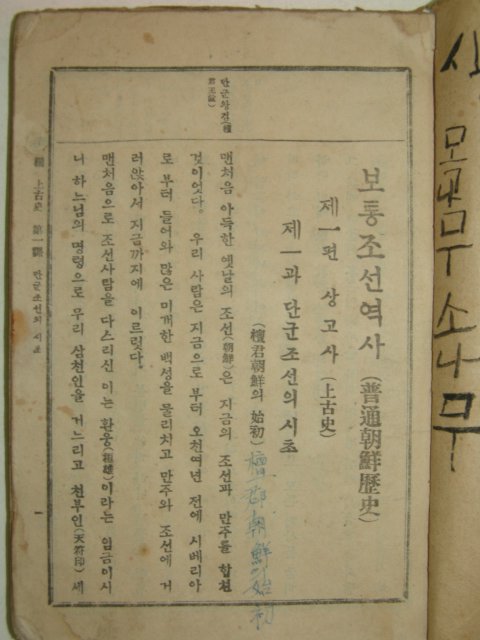 보통조선역사 (普通朝鮮歷史)
제一편 상고사 (上古史)
제一과 단군조선의 시초
(檀君朝鮮의 始初)
檀君朝鮮이始初
맨처음 아득한 옛날의 조선(朝鮮)은 지금의 조선과 만주를 합친
것이엇다. 우리 사람은 지금으로 부터 오천여년 전에 시베리아
로 부터 들어와 많은 미개한 백성을 물리치고 만주와 조선에 거
러앉아서 지금까지에 이르럿다.
맨처음으로 조선사람을 다스리신 이는 환웅(桓雄)이라는 임금이시
니 하느님의 명령으로 우리 삼천인을 거느리고 천부인(天符印) 세
단군왕검(檀
君王儉)
上古史 第一課 단군조선의 시초
一
모나무소나무